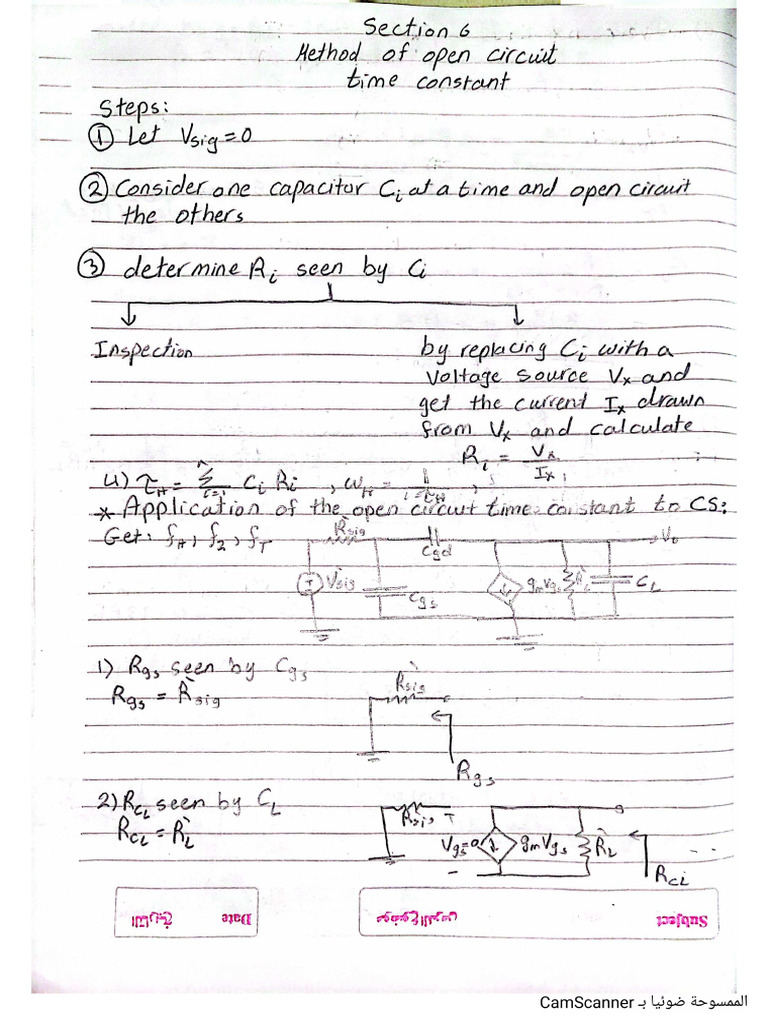 Section 6
Method of open circuit
time constant
Steps:
① Let Vsig = 0
② Consider one capacitor Ci at a time and open circuit
the others
③ determine Ri seen by Ci
Inspection
by replacing Ci with a
voltage source Vx and
get the current Ix drawn
from Vx and calculate
Ri = Vx / Ix
4) τH = Σ i=1 n Ci Ri , ωH = 1 / τH
* Application of the open circuit time constant to CS:
Get: fH, fZ, fT
R`sig
Cgd
Vo
V`sig
Cgs
gmVgs
R`L
CL
1) Rgs seen by Cgs
Rgs = R`sig
R`sig
Rgs
2) RCL seen by CL
RCL = R`L
Rsig
+
Vgs=0
-
gmVgs
R`L
RCL
التاريخ
Date
موضوع الدرس
Subject
الممسوحة ضوئيا بـ CamScanner